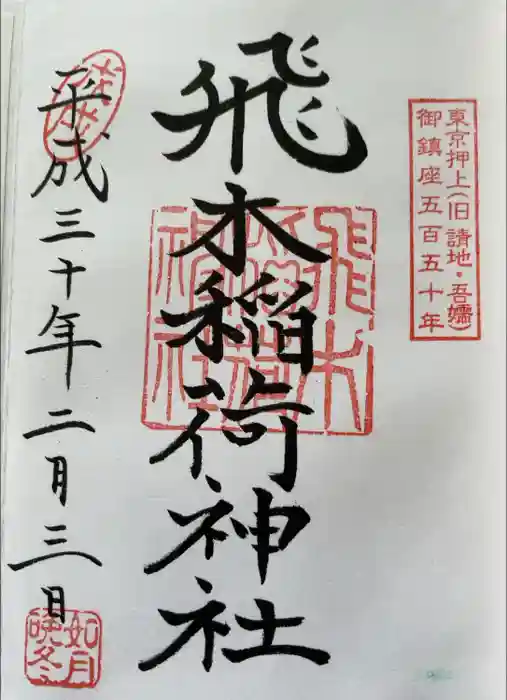 東京押上(旧 請地・吾嬬)
御鎮座五百五十年
飛木稲荷神社
飛木
稲荷
神社
平成三十年二月三日
如月
晩冬